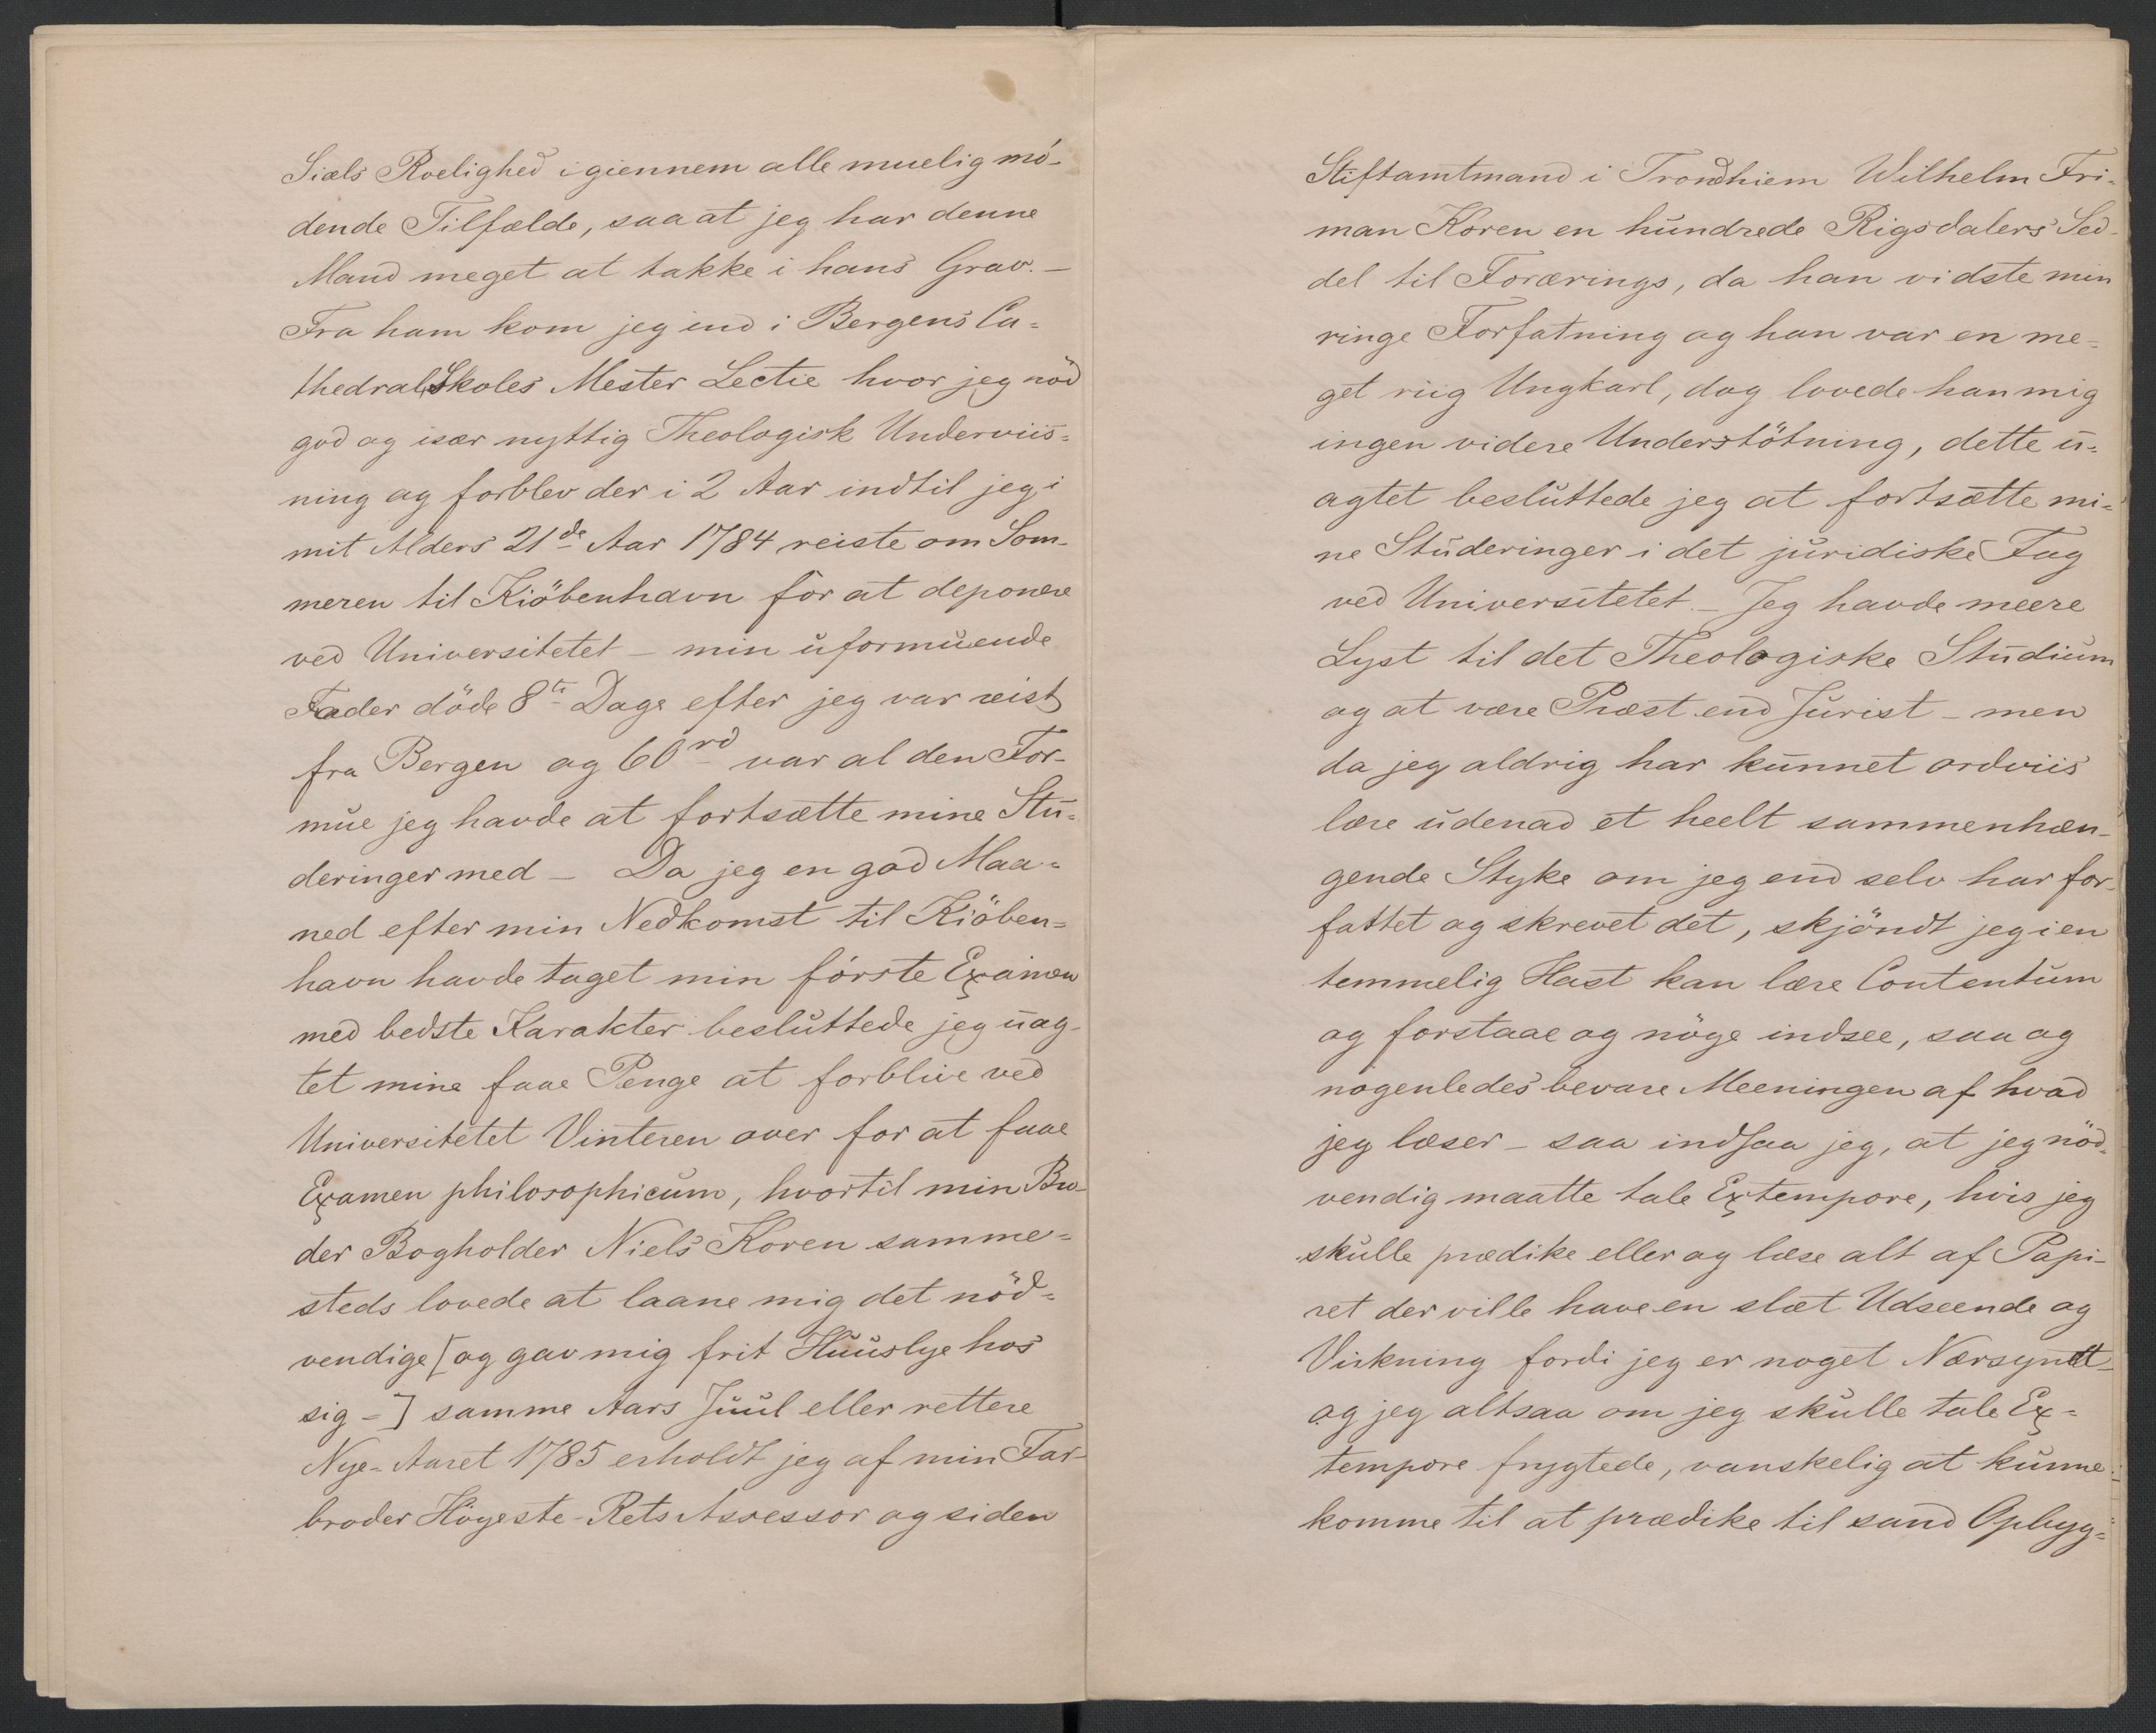 Siæls Roelighed igiennem alle muelig mö-
dende Tilfælde, saa at jeg har denne
Mand meget at takke i hans Grav. —
Fra ham kom jeg ind i Bergens Ca=
thedralSkoles Mester Lectie hvor jeg nöd
god og især nyttig Theologisk Underviis=
ning og forblev der i 2 Aar indtil jeg i
mit Alders 21de Aar 1784 reiste om Som-
meren til Kiöbenhavn for at deponere
ved Universitetet — min uformuende
Fader döde 8te Dage efter jeg var reist
fra Bergen og 60 rd var al den For-
mue jeg havde at fortsætte mine Stu=
deringer med — Da jeg en god Maa=
ned efter min Nedkomst til Kiöben=
havn havde taget min förste Examen
med bedste Karakter besluttede jeg uag-
tet mine faae Penge at forblive ved
Universitetet Vinteren over for at faae
Examen philosophicum, hvortil min Bro-
der Bogholder Niels Koren samme=
steds lovede at laane mig det nöd=
vendige [og gav mig frit Huuslye hos
sig —] samme Aars Juul eller rettere
Nye-Aaret 1785 erholdt jeg af min Far-
broder Höyeste-Rets Assessor og siden
Stiftamtmand i Trondhiem Wilhelm Fri-
man Koren en hundrede Rigsdalers Sed-
del til Forærings, da han vidste min
ringe Forfatning og han var en me=
get riig Ungkarl, dog lovede han mig
ingen videre Understötning, dette u=
agtet besluttede jeg at fortsætte mi=
ne Studeringer i det juridiske Fag
ved Universitetet. — Jeg havde meere
Lyst til det Theologiske Studium
og at være Præst end Jurist — men
da jeg aldrig har kunnet ordviis
lære udenad et heelt sammenhæn-
gende Styke om jeg end selv har for-
fattet og skrevet det, skjöndt jeg i en
temmelig Hast kan lære Contentum
og forstaae og nöye indsee, saa og
nogenledes bevare Meeningen af hvad
jeg læser — saa indsaa jeg, at jeg nöd-
vendig maatte tale Extempore, hvis jeg
skulle prædike eller og læse alt af Papi-
ret der ville have en slæt Udseende og
Virkning fordi jeg er noget Nærsyndt —
og jeg altsaa om jeg skulle tale Ex=
tempore frygtede, vanskelig at kunne
komme til at prædike til sand Opbyg=